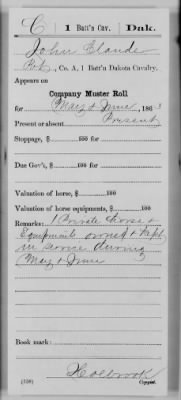 C | 1 Batt'n Cav. | Dak.
John Claude
Pvt, Co. A, 1 Batt'n Dakota Cavalry.
Appears on
Company Muster Roll
for May & June, 1863
Present or absent Present
Stoppage, $ 100 for
Due Gov't, $ 100 for
Valuation of horse, $ 100
Valuation of horse equipments, $ 100
Remarks: 1 Private horse &
Equipments owned & kept
in service during
May & June
Book mark:
Holbrook
(358) Copyist.